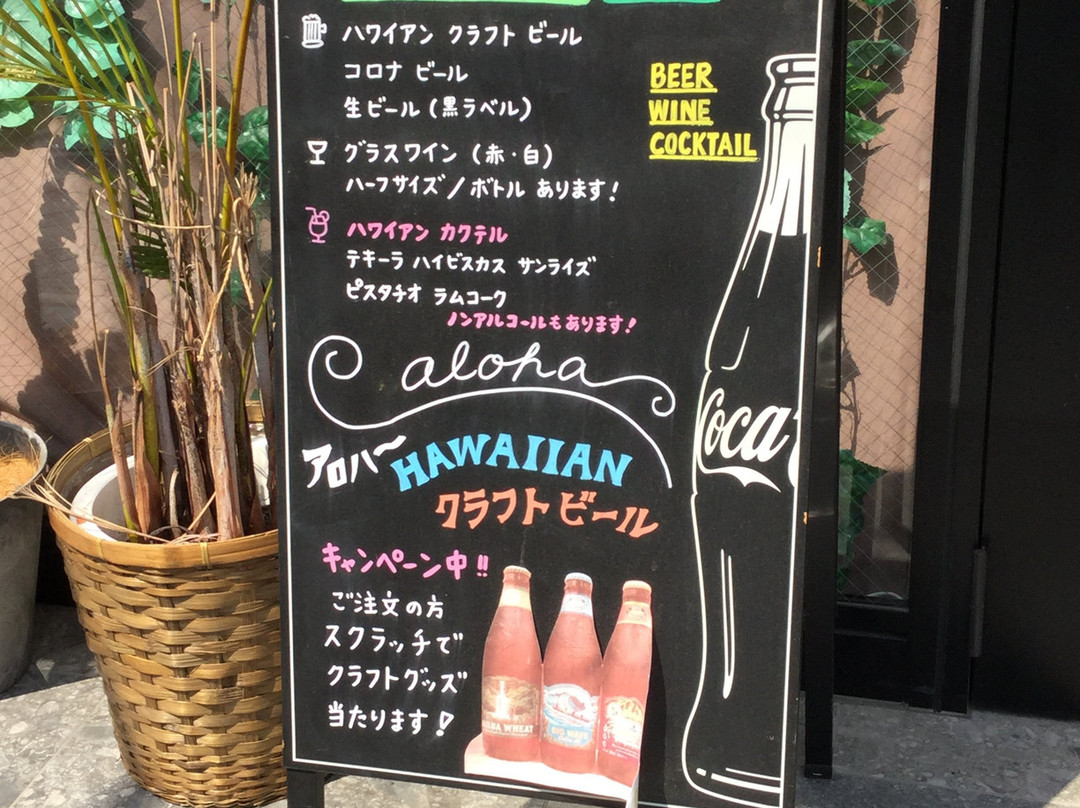 ハワイアン クラフト ビール
コロナ ビール
生ビール (黒ラベル)
BEER
WINE
COCKTAIL
グラスワイン (赤・白)
ハーフサイズ/ボトル あります!
ハワイアン カクテル
テキーラ ハイビスカス サンライズ
ピスタチオ ラムコーク
ノンアルコールもあります!
aloha
Coca
アロハー HAWAIIAN
クラフト ビール
キャンペーン中!!
ご注文の方
スクラッチで
クラフトグッズ
当たります!
WHEAT
BIG WAVE